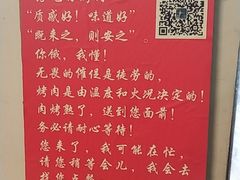 "质感好！味道好"
"既来之，则安之"。
你饿，我懂！
无畏的催促是徒劳的，
烤肉是由温度和火况决定的！
肉烤熟了，送到您面前！
务必请耐心等待！
您来了，我可能在忙，
请您稍等会儿，我会去